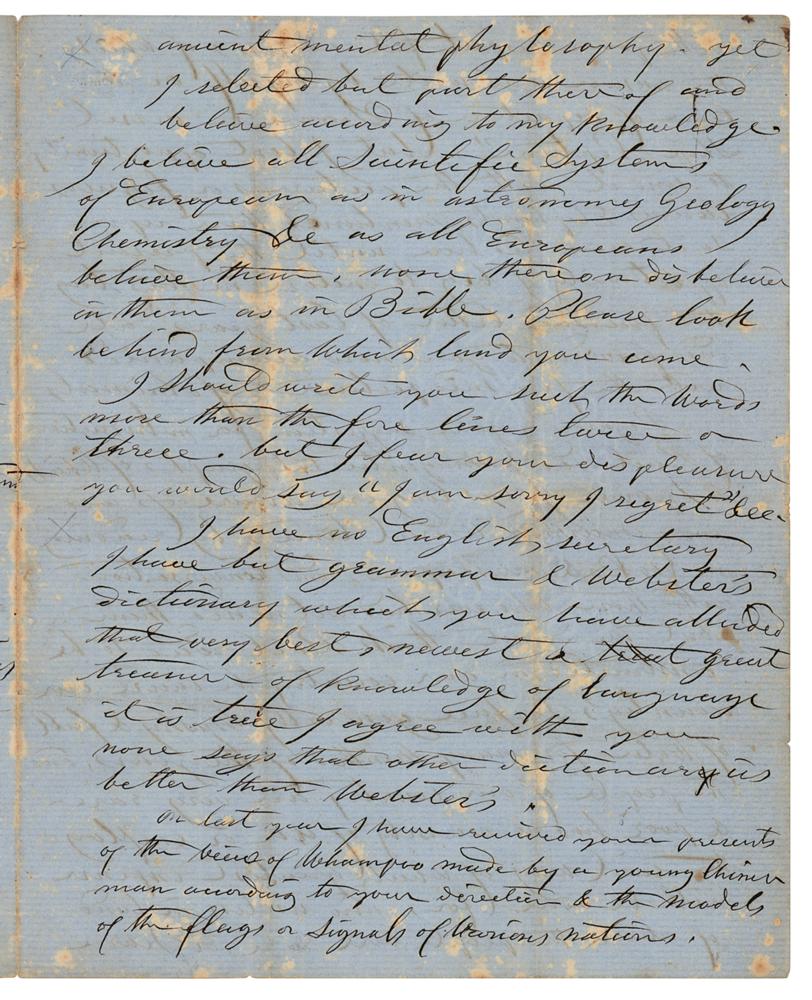 ancient mental phylosophy. yet
I selected but part thereof and
believe according to my knowledge.
I believe all Scientific Systems
of European as in astronomy Geology
Chemistry &c as all Europeans
believe them, none thereon disbeliever
in them as in Bible. Please look
behind from which land you come.
I should write you such the words
more than the fore lines twice or
threee. but I fear your displeasure
you would say "I am sorry I regret" &ee.
I have no English secretary
I have but grammar & Webster's
dictionary which you have alluded
that very best, newest & great
treasure of knowledge of language
it is true I agree with you
none says that other dictionary is
better than Webster's.
On last year I have received your presents
of the view of Whampoo made by a young Chinese
man according to your direction & the models
of the flags or signals of various nations.